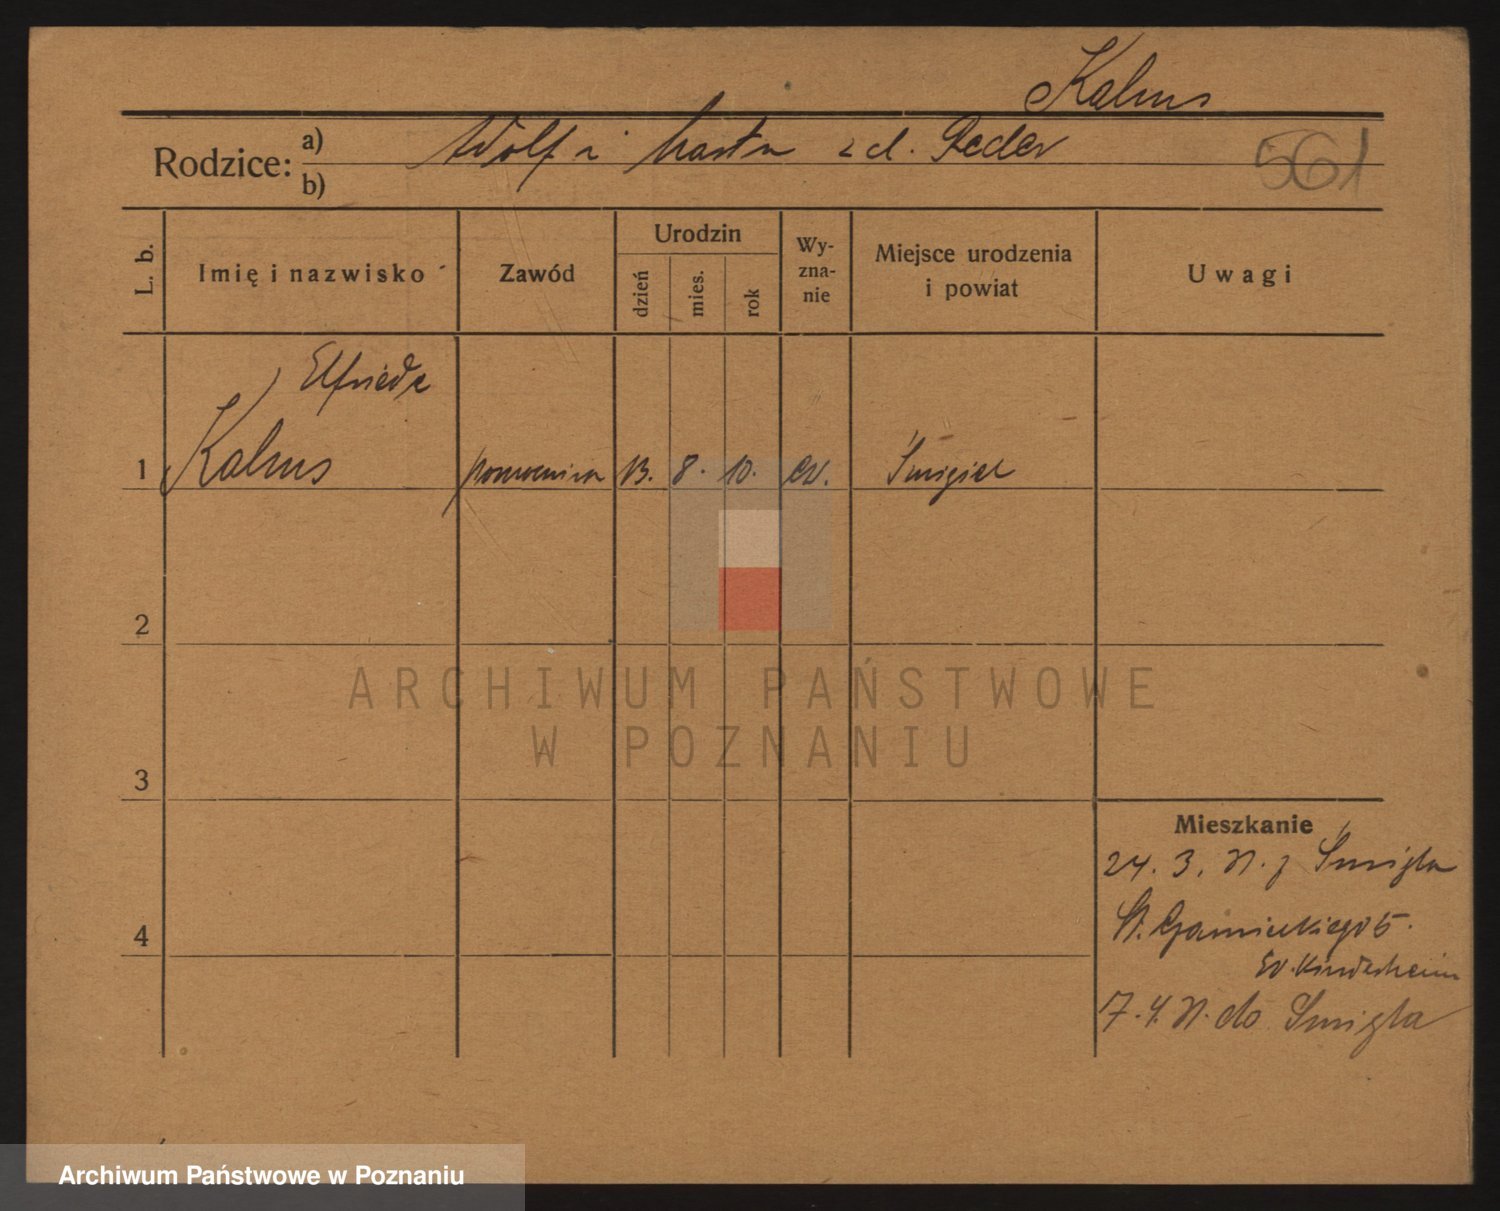 Kalmus
Rodzice: a) Adolf i Marta z d. Reder
b)
561
L. b.
Imię i nazwisko
Zawód
Urodzin
dzień
mies.
rok
Wy-
zna-
nie
Miejsce urodzenia
i powiat
Uwagi
Elfriede
1 Kalmus 13. 8. 10. ew. Śmigiel
2
3
4
Mieszkanie
24. 3. Śmigla
5.
Ev. Kinderheim
7. 4. do Smigla
ARCHIWUM PAŃSTWOWE
W POZNANIU
Archiwum Państwowe w Poznaniu